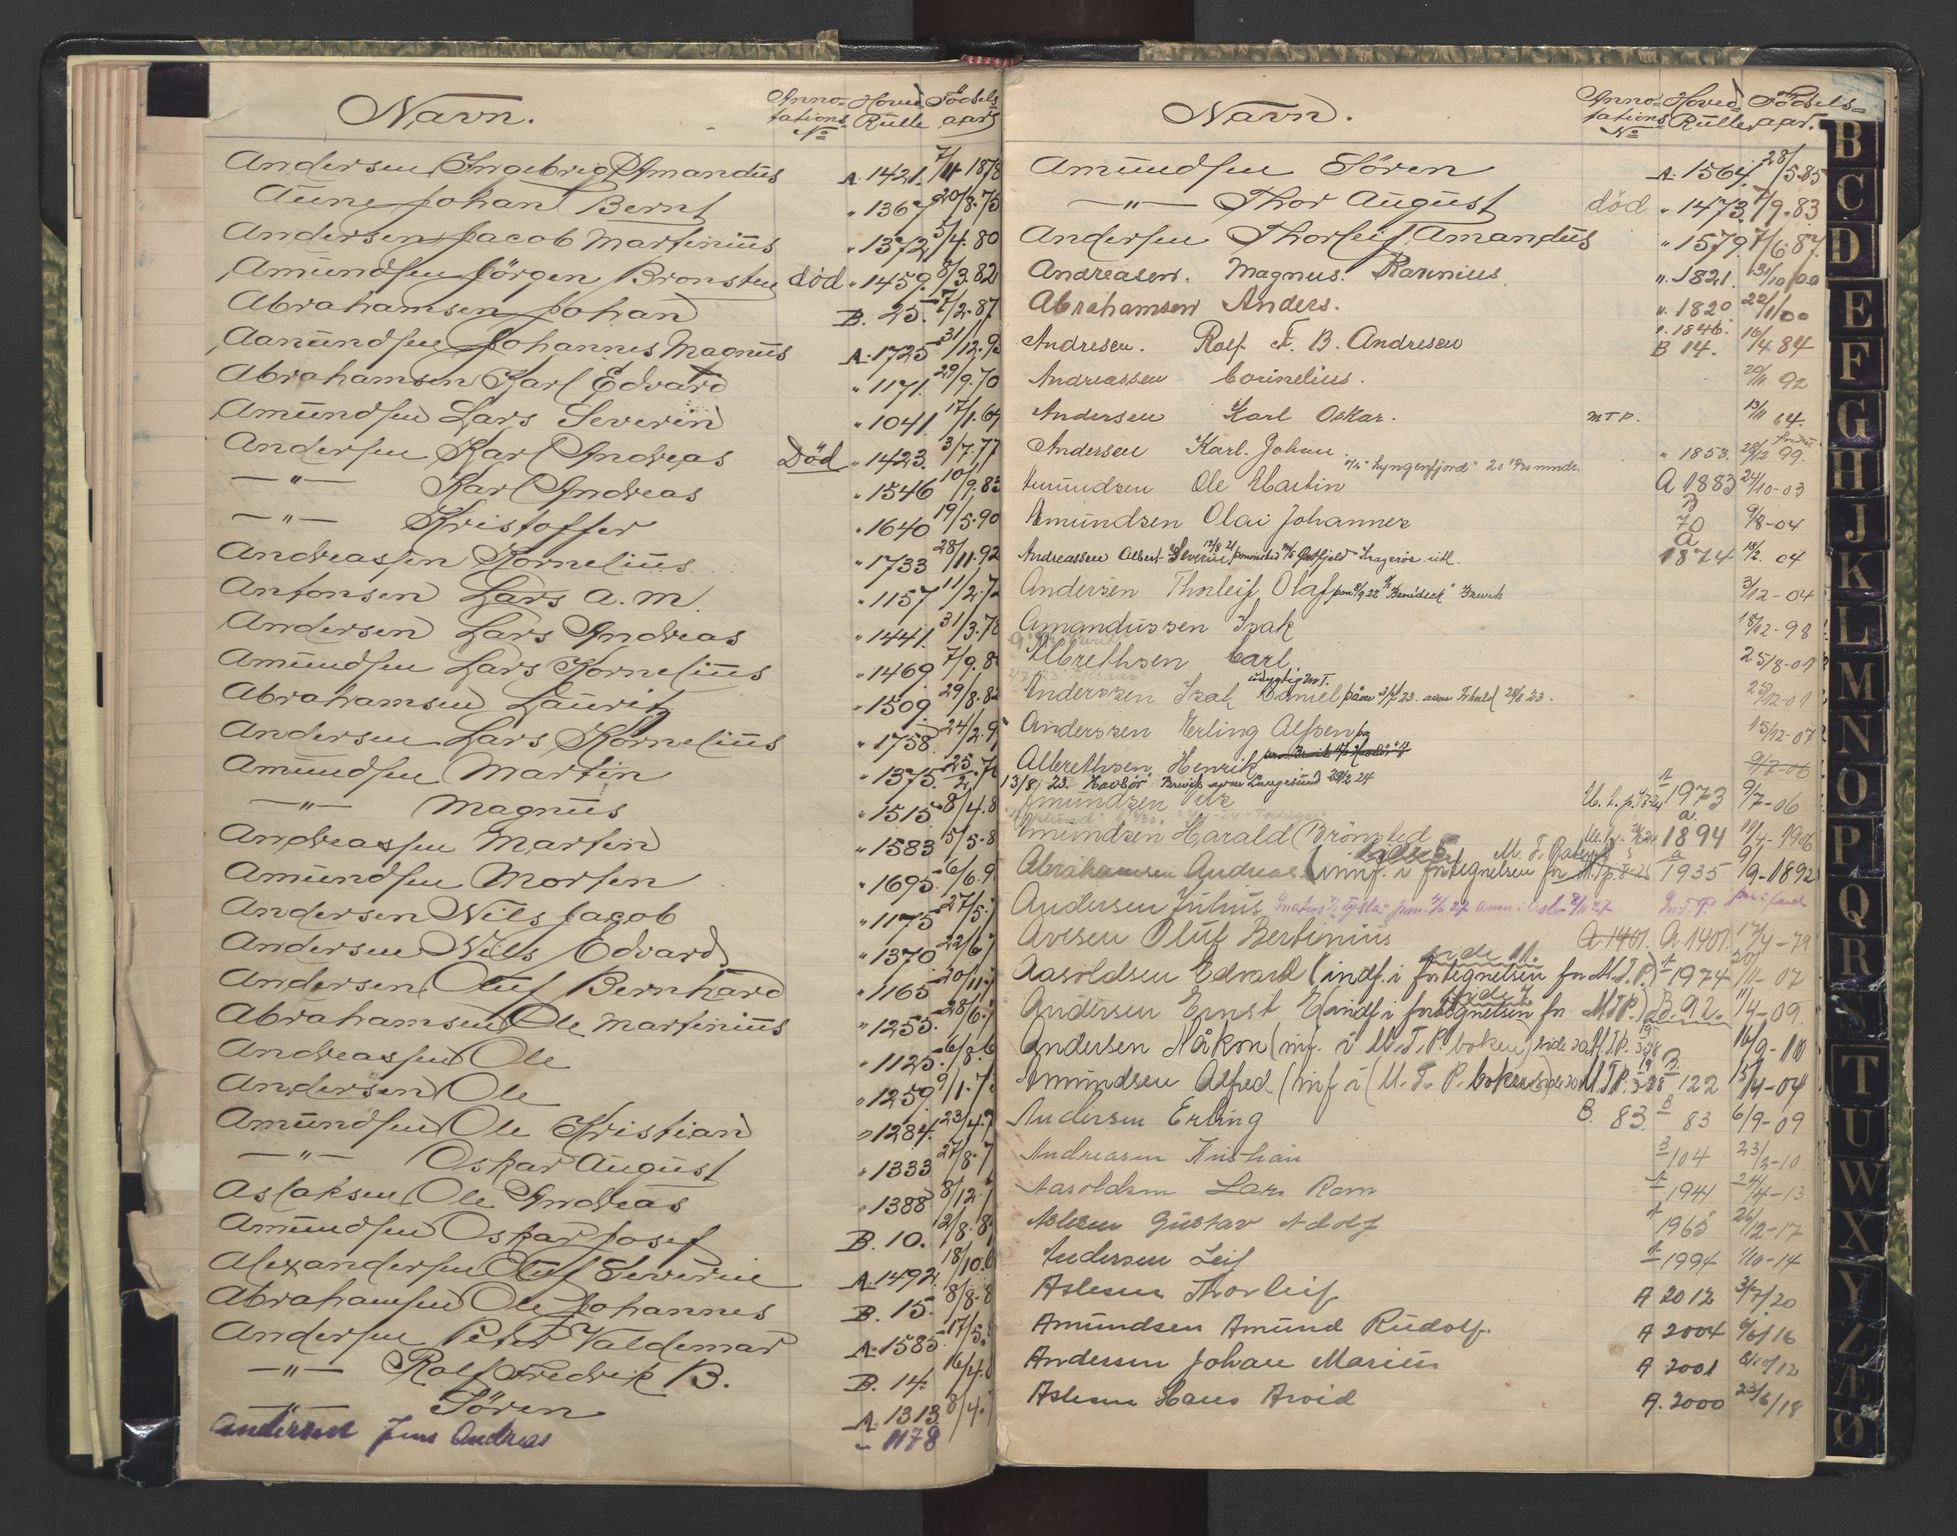 Navn. Anno- Hoved Födsels
tations Rulle aar
No
Andersen Ingebrigt Amandus A. 1421. 7/11 1878
Aune Johan Bernt " 1367 20/8.75
Andersen Jacob Martinius " 1372 5/4.80
Amundsen Jörgen Bronsten död " 1459. 8/3.82
Abrahamsen Johan B. 25. 7/2.87
Aamundsen Johannes Magnus A. 1725 31/12.9
Abrahamsen Karl Edvard " 1171. 29/9.70
Amundsen Lars Severin " 1041. 17/1.67
Andersen Karl Andreas Död " 1423. 3/7.77
—"— Karl Andreas " 1546 10/9.83
—"— Kristoffer " 1640 19/5.90
Andreassen Kornelius " 1733 28/11.92
Antonsen Lars A. M. " 1157 11/2.72
Andersen Lars Andreas " 1441. 31/3.78
Amundsen Lars Kornelius " 1469 7/9.8
Abrahamsen Laurits " 1509. 29/8.82
Andersen Lars Kornelius " 1758. 24/2.9
Amundsen Martin " 1375. 25/2.7
—"— Magnus " 1515 8/4.8
Andreassen Martin " 1583 5/5.8
Amundsen Morten " 1695 6/6.9
Andersen Nils Jacob " 1175 27/5.
Andersen Nils Edvard " 1370 22/6.
Andersen Oluf Bernhard " 1165 20/11.
Abrahamsen Ole Martinius " 1255. 28/6.
Andreassen Ole " 1125. 6/8.6
Andersen Ole " 1259 9/1.7
Amundsen Ole Kristian " 1284. 23/4.7
—"— Oskar August " 1333 27/8.7
Aslaksen Ole Andreas " 1388 8/12.
Amundsen Oskar Josef B. 10. 12/8.8
Alexandersen Oluf Severin A. 1492. 18/10.6
Abrahamsen Ole Johannes B. 15. 8/8.8
Andersen Peter Valdemar A. 1585 17/5.
—"— Rolf Fredrik B. B. 14. 16/4.8
—"— Sören A. 1313 8/4.
Andersen Jens Andreas " 1178
Navn. Anno- Hoved Födsels-
tations Rulle aar.
No
Amundsen Sören A. 1564. 28/5.85
—"— Thor August död " 1473. 7/9.83
Andersen Thorleif Amandus " 1579. 7/6.87.
Andreasen. Magnus Rannius " 1821. 31/10 00
Abrahamsen Anders. " 1820 22/11 00
" 1846.
Andresen. Rolf F. B. Andresen B 14. 16/4 84
Andreassen Cornelius. 20/11 92
Andersen Karl Oskar. MTP. 13/11 64.
Andersen Karl Johan. " 1853. 28/12 99.
"Lyngenfjord"
Amundsen Ole Martin A 1883 24/10-03
Amundsen Olai Johannes B 70 9/8-04
Andreassen Albert Severin A 1874 18/2. 04
Andersen Thorleif Olaf Brevik 3/12-04
Amandussen Isak 18/12-98
Albrethsen Carl 25/8-07
udygtig M.T.
Anderssen Isak Daniel 25/12-07
Anderssen Erling Alfsen 15/12-07
Albrethsen Henrik 9/7-06
13/8 23. "Havbör" Brevik Langesund 29/2 24
Amundsen A 1973 9/7-06
Amundsen Harald Brönsted A. 1894 19/4-1906
Abrahamsen Andreas (innf. i fortegnelsen for A 1935 9/9-1892
Andersen Julius
Avesen Oluf Bertinius A. 1401. A. 1401. 17/4-79
side 11.
Aaroldsen Edvard (indf. i fortegnelsen for M.T.P.) A 1974 20/11-07
side 7
Andersen Ernst E (indf. i fortegnelsen for MTP.) B. 92. 11/4-09.
Andersen Håkon (inf. i M.T.P. boken) 16/9-10
Amundsen Alfred (inf i (M.T.P. boken B 122 15/4-04
Andersen Erling B. 83. B 83 6/9-09
Andreasen Kristian B 104 23/2-10
Aaroldsen Lars Ram A 1941 24/4-13
Aslesen Gustav Adolf A 1965 26/12-17
Andersen Leif A 1994 1/10-14
Aslesen Thorleif A 2012 3/7/20
Amundsen Amund Rudolf. A 2004 6/6/16
Andersen Johan Marius A 2001 8/10/12
Aslesen Hans Arvid A. 2000 23/6/18
B
C
D
E
F
G
H
J
K
L
M
N
O
P
Q
R
S
T
U
W
X
Y
Z
Æ
Ø